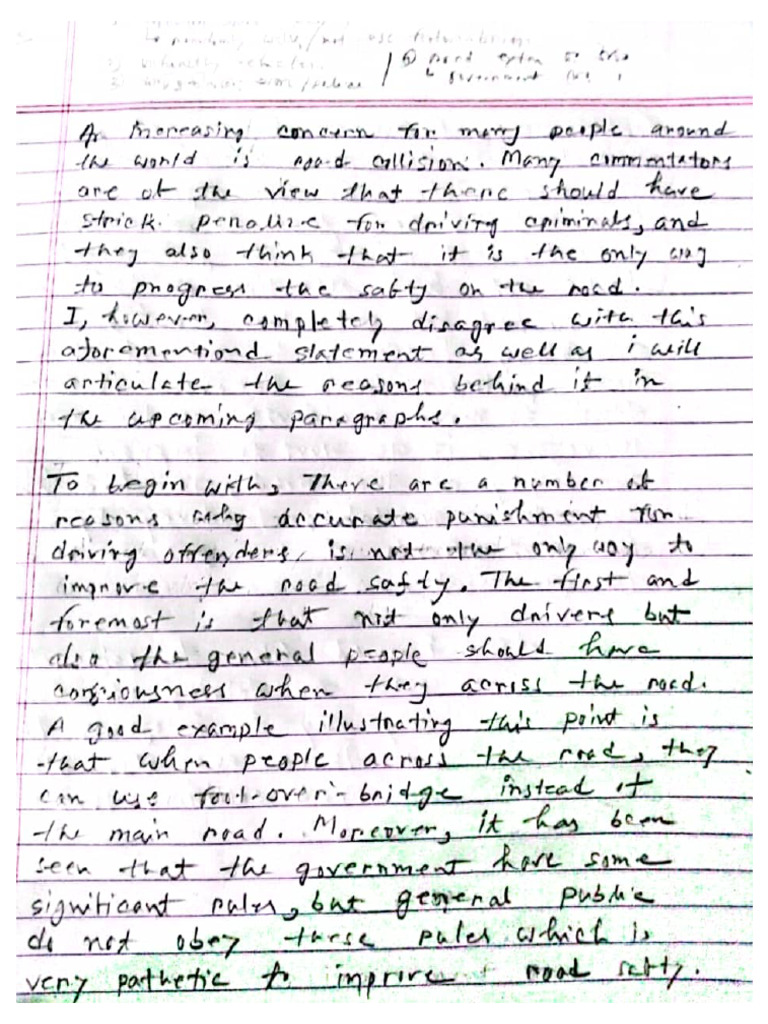 use
government
An increasing concern for many people around
the world is road collision. Many commentators
are of the view that there should have
strick penalize for driving criminals, and
they also think that it is the only way
to progress the safty on the road.
I, however, completely disagree with this
aforementiond statement as well as i will
articulate the reasons behind it in
the upcoming paragraphs.
To begin with, There are a number of
reasons why accurate punishment for
driving offenders, is not the only way to
improve the road safty. The first and
foremost is that not only drivers but
also the general people should have
consiousness when they across the road.
A good example illustrating this point is
that when people across the road, they
can use foot-over-bridge instead of
the main road. Moreover, it has been
seen that the government have some
significant rules, but general public
do not obey these rules which is
very pathetic to improve road safty.